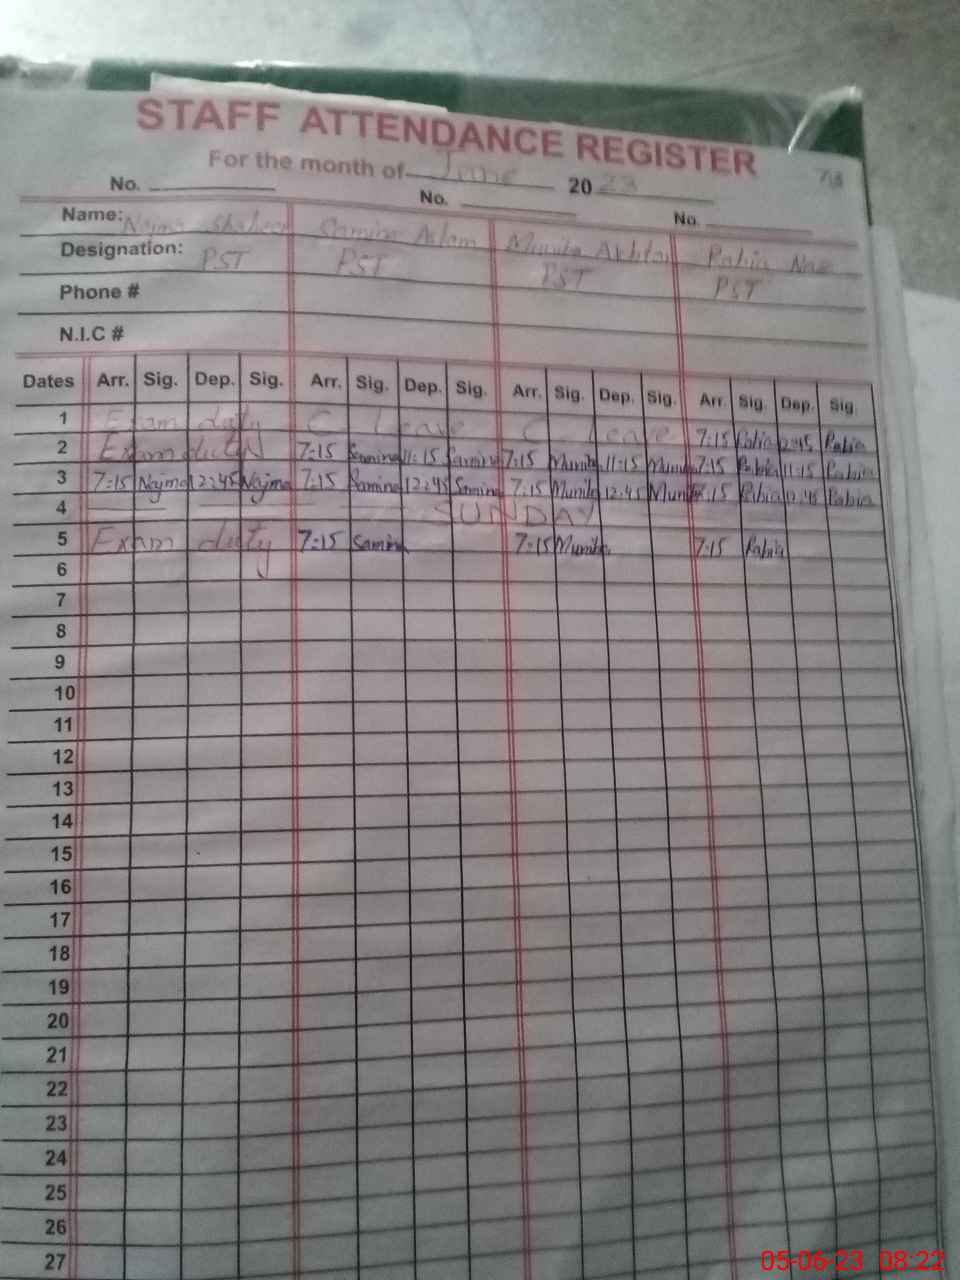 STAFF ATTENDANCE REGISTER
For the month of June 2023
No. No. No.
Name: Najma Shaheen Samina Aslam Muniba Akhtar Rabia Naz
Designation: PST PST PST PST
Phone #
N.I.C #
Dates Arr. Sig. Dep. Sig. Arr. Sig. Dep. Sig. Arr. Sig. Dep. Sig. Arr. Sig. Dep. Sig.
1 Exam duty C. leave C. leave 7:15 Rabia 12:45 Rabia
2 Exam duty 7:15 Samina 11:15 Samina 7:15 Muniba 11:15 Muniba 7:15 Rabia 11:15 Rabia
3 7:15 Najma 12:45 Najma 7:15 Samina 12:45 Samina 7:15 Muniba 12:45 Muniba 7:15 Rabia 12:45 Rabia
4 SUNDAY
5 Exam duty 7:15 Samina 7:15 Muniba 7:15 Rabia
6
7
8
9
10
11
12
13
14
15
16
17
18
19
20
21
22
23
24
25
26
27
05-06-23 08:22